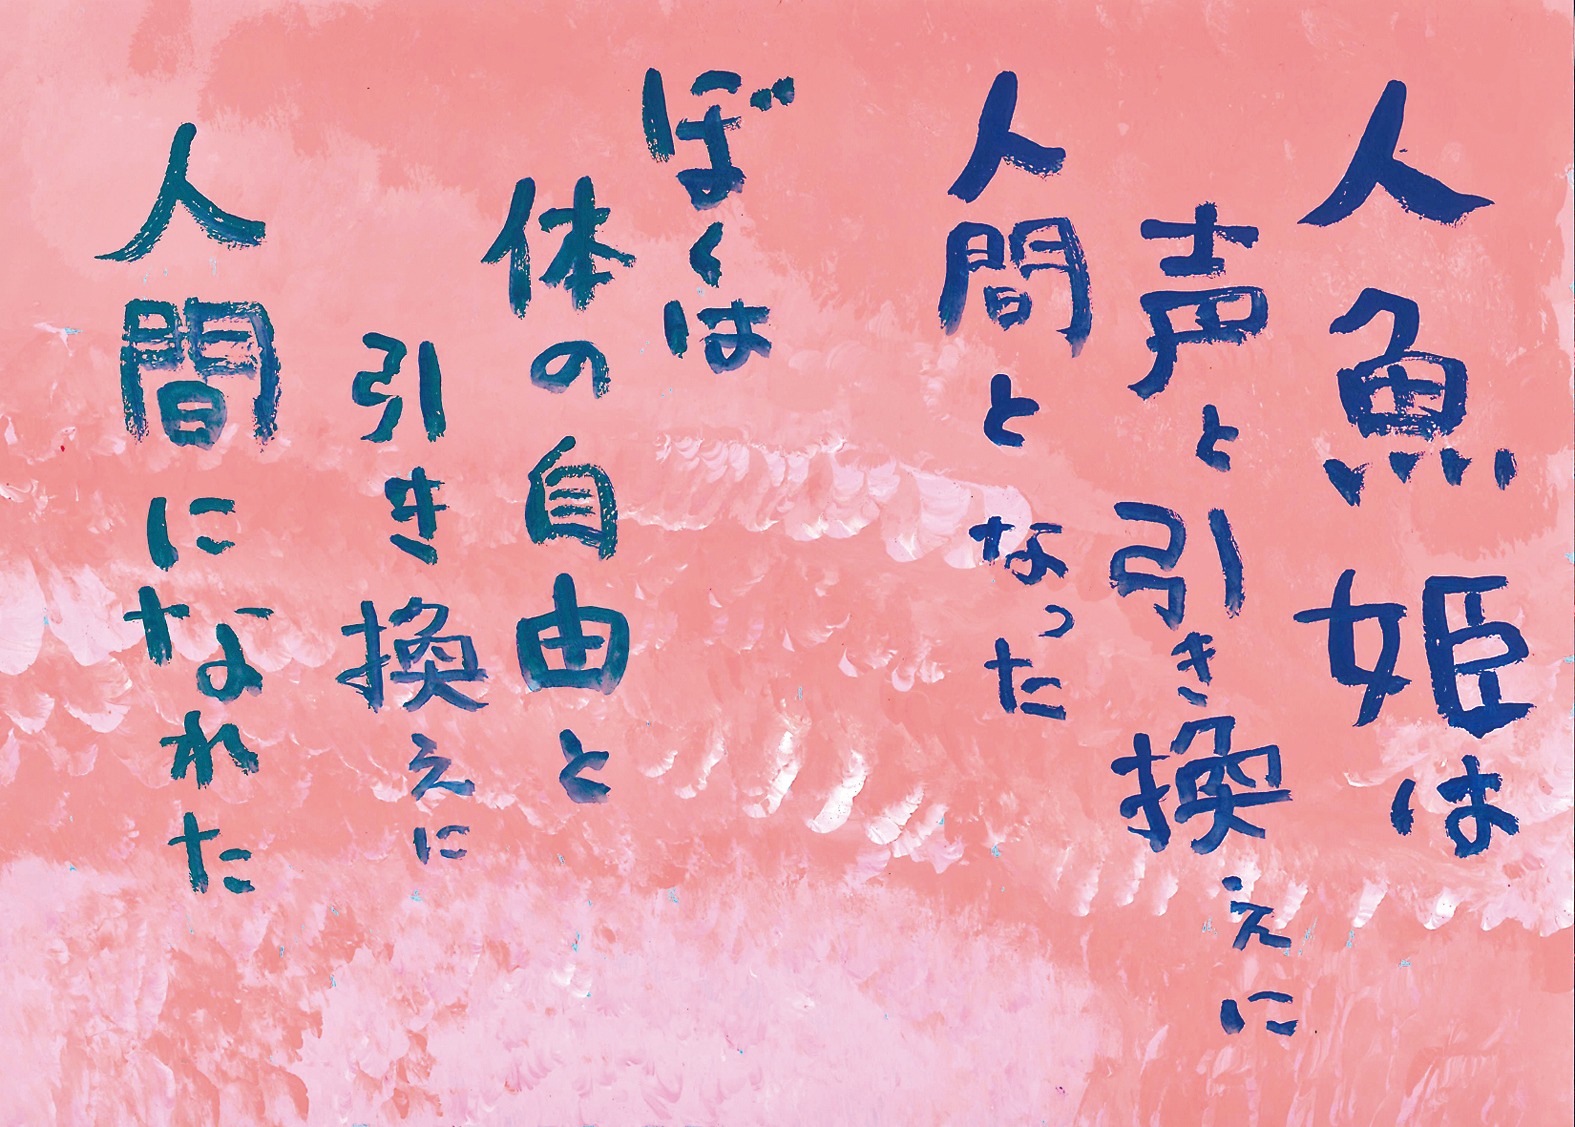 人魚姫は
声と引き換えに
人間となった
ぼくは
体の自由と
引き換えに
人間になれた